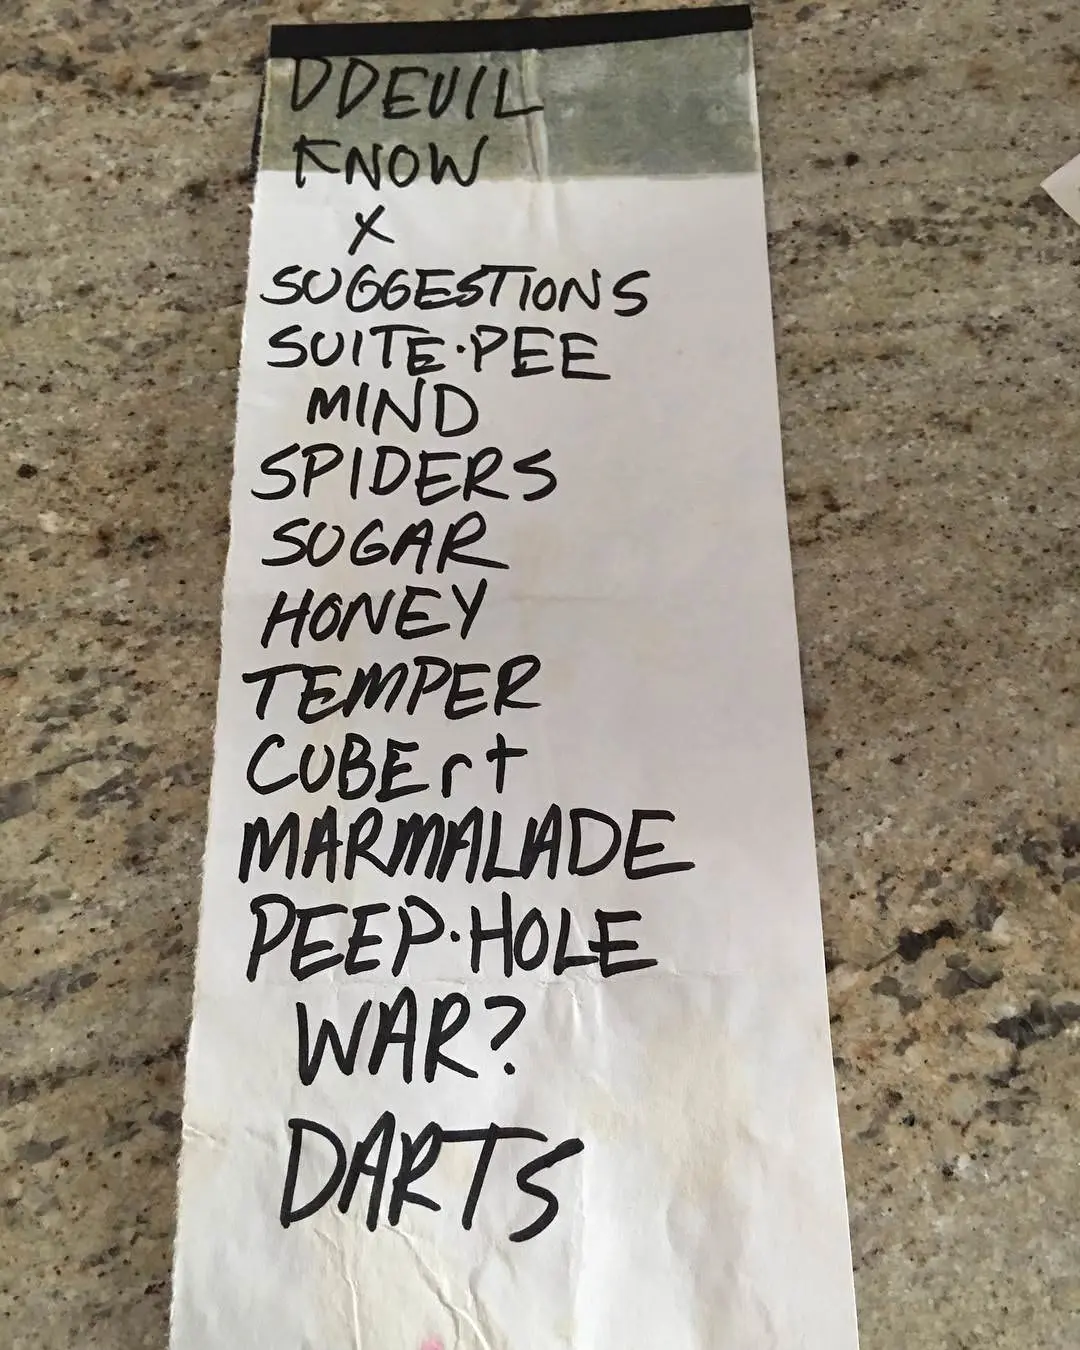 DDEVIL
KNOW
X
SUGGESTIONS
SUITE·PEE
MIND
SPIDERS
SUGAR
HONEY
TEMPER
CUBErt
MARMALADE
PEEP·HOLE
WAR?
DARTS